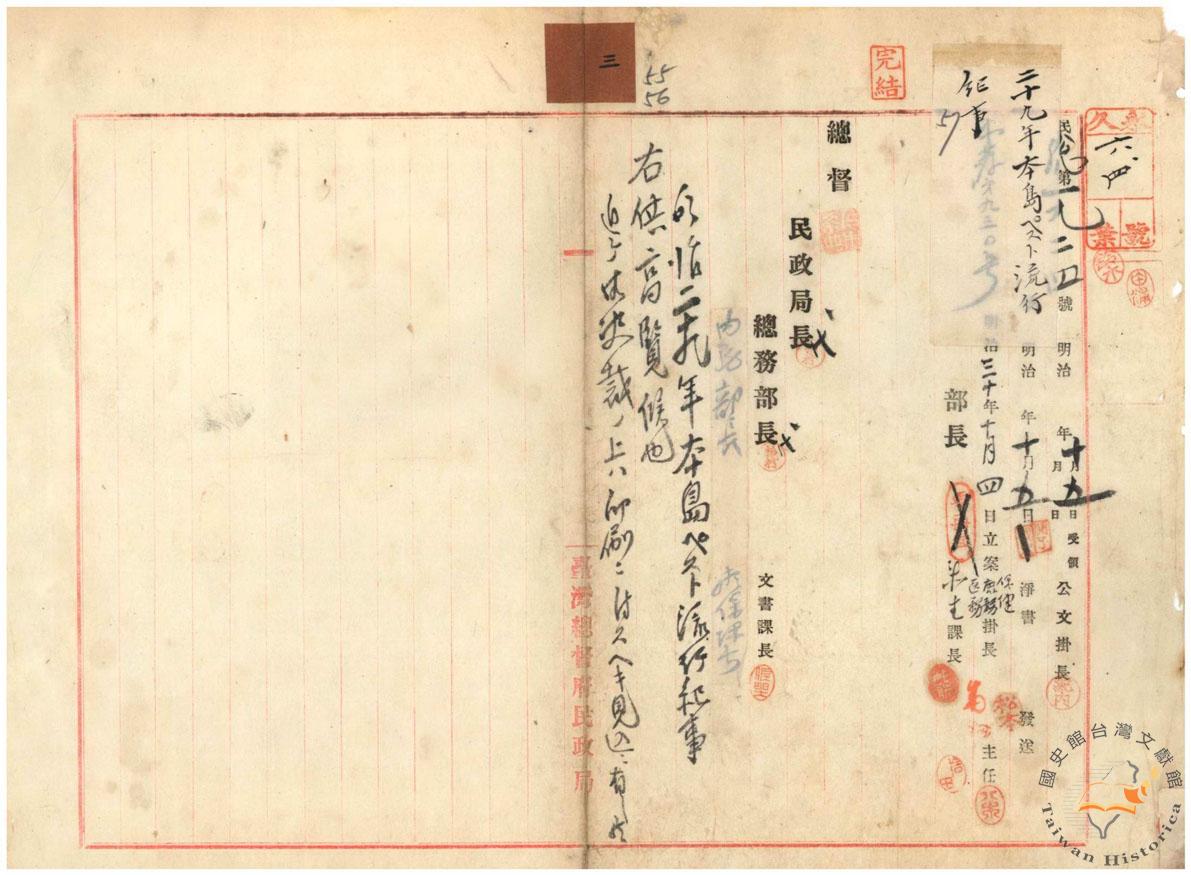 三
55
56
完結
永久
六、四
號
業
二十九年本島ペスト流行
紀事
57
民
第一九二四號
明治 年 十月 九日受領
公文掛長
明治 年 十月 日
淨書
發送
明治三十年十月四日立案
保健
医務
掛長
主任
部長
衛生課長
總督
民政局長
總務部長
文書課長
明治二十九年本島ペスト流行紀事
右供高覽候也
追テ御決裁ノ上ハ印刷ニ付スヘキ見込ニ有之候
臺灣總督府民政局
國史館台灣文獻館
Taiwan Historica